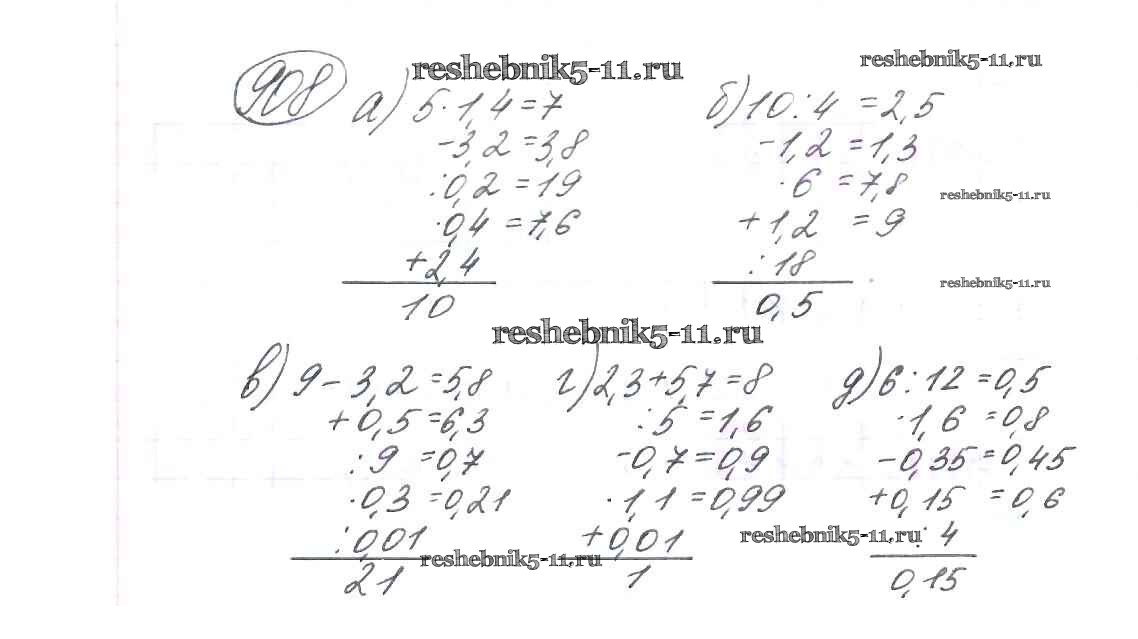 908
reshebnik5-11.ru
reshebnik5-11.ru
а) 5·1,4=7
-3,2=3,8
:0,2=19
·0,4=7,6
+2,4
10
б) 10:4=2,5
-1,2=1,3
·6=7,8
+1,2=9
:18
0,5
reshebnik5-11.ru
reshebnik5-11.ru
reshebnik5-11.ru
в) 9-3,2=5,8
+0,5=6,3
:9=0,7
·0,3=0,21
:0,01
21
г) 2,3+5,7=8
:5=1,6
-0,7=0,9
·1,1=0,99
+0,01
1
д) 6:12=0,5
·1,6=0,8
-0,35=0,45
+0,15=0,6
:4
0,15
reshebnik5-11.ru
reshebnik5-11.ru